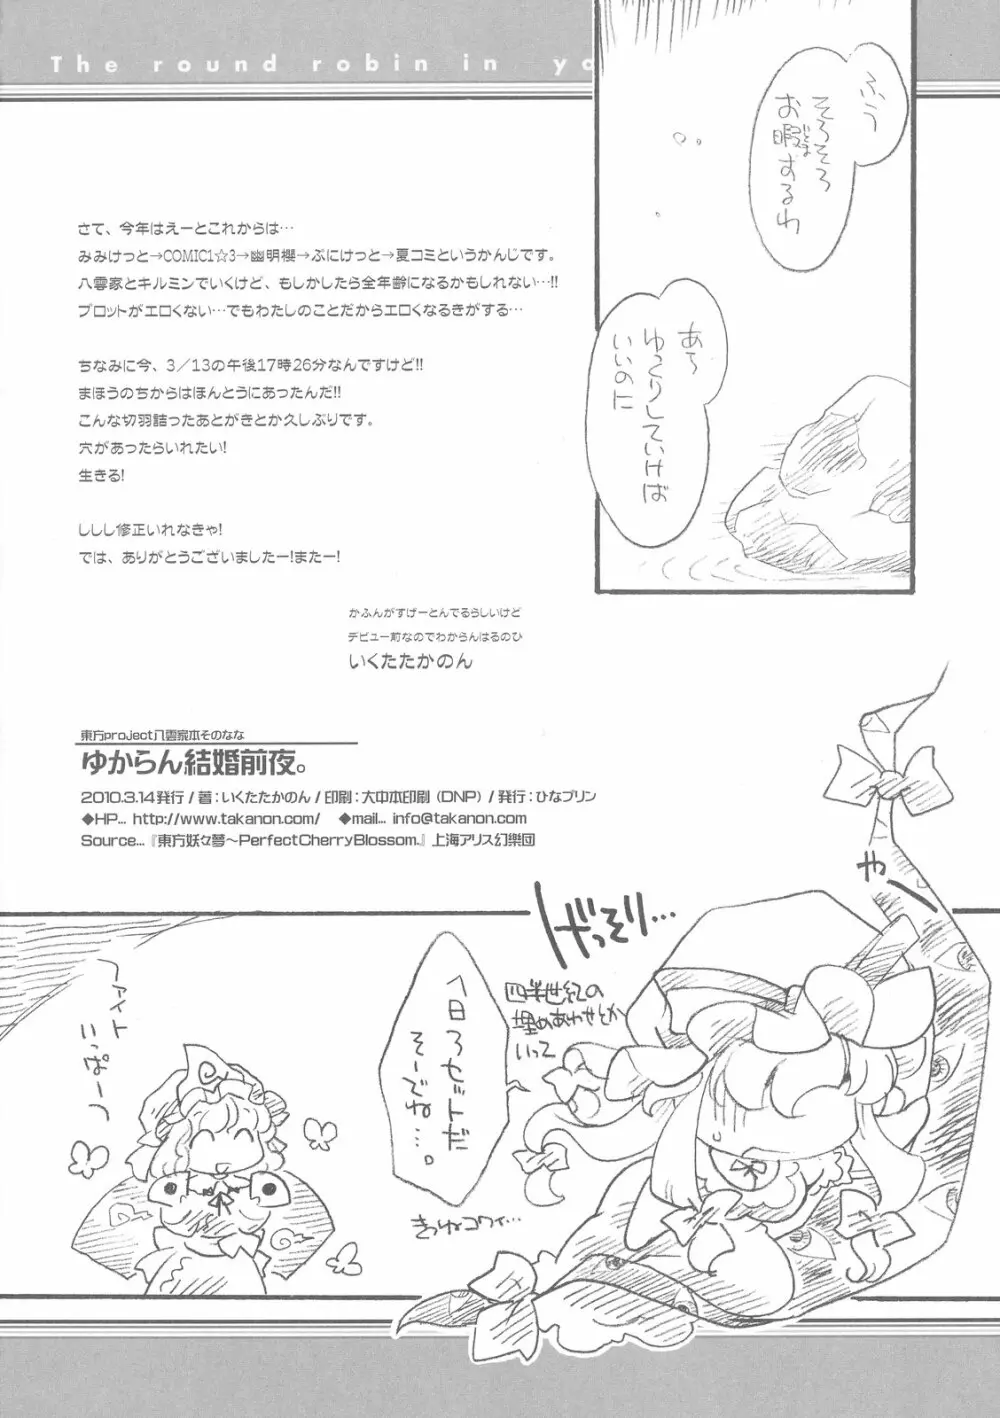 The round robin in ya
ふう
そろそろ
お暇するわ
いとま
あら
ゆっくりしていけば
いいのに
さて、今年はえーとこれからは…
みみけっと→COMIC1☆3→幽明櫻→ぷにけっと→夏コミというかんじです。
八雲家とキルミンでいくけど、もしかしたら全年齢になるかもしれない…!!
プロットがエロくない…でもわたしのことだからエロくなるきがする…
ちなみに今、3/13の午後17時26分なんですけど!!
まほうのちからはほんとうにあったんだ!!
こんな切羽詰ったあとがきとか久しぶりです。
穴があったらいれたい!
生きる!
ししし修正いれなきゃ!
では、ありがとうございましたー!またー!
かふんがすげーとんでるらしいけど
デビュー前なのでわからんはるのひ
いくたたかのん
東方project八雲家本そのなな
ゆからん結婚前夜。
2010.3.14発行 / 著:いくたたかのん / 印刷:大中本印刷 (DNP) / 発行:ひなプリン
◆HP... http://www.takanon.com/ ◆mail... info@takanon.com
Source...『東方妖々夢～PerfectCherryBlossom.』上海アリス幻樂団
や～ん
げっそり…
四半世紀の
埋めあわせとか
いって
1日3セットだ
そーでね…。
きつねコワイ…
ファイト
いっぱーつ